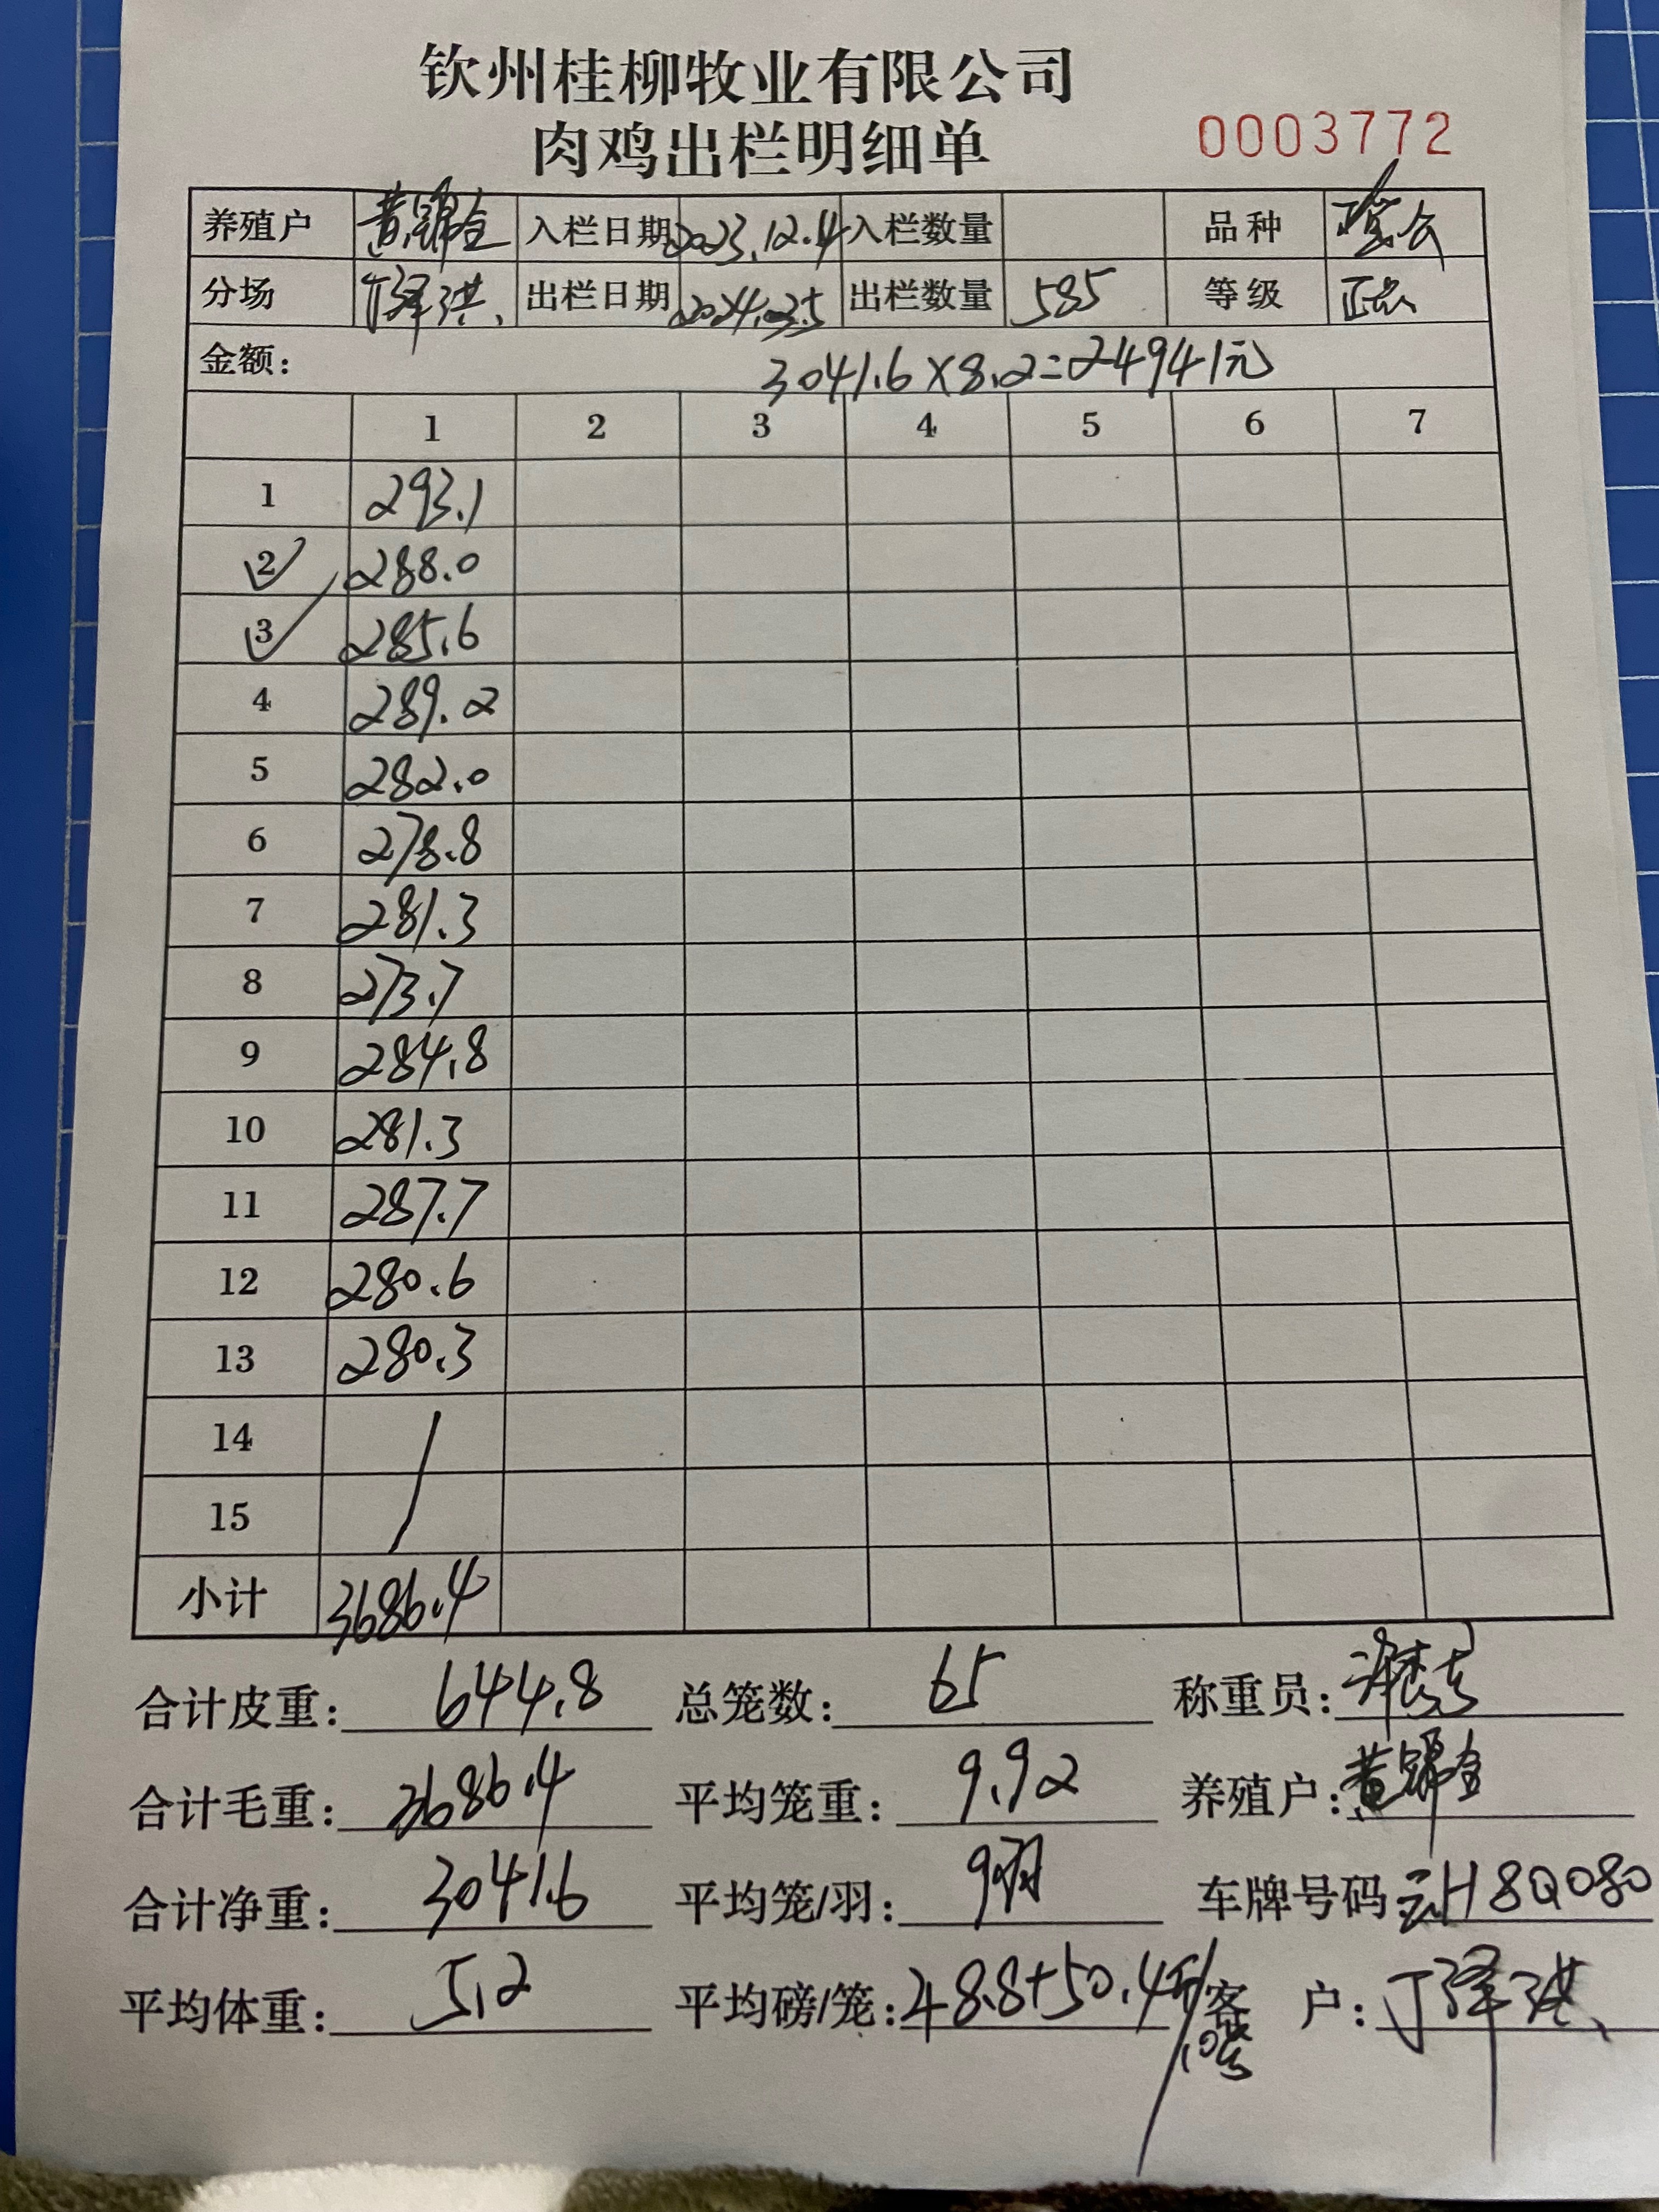 钦州桂柳牧业有限公司
肉鸡出栏明细单
0003772
养殖户 黄锦全 入栏日期 2023.12.4 入栏数量 品种
分场 丁泽洪 出栏日期 2024.3.5 出栏数量 585 等级
金额: 3041.6×8.2=24941元
1 2 3 4 5 6 7
1 293.1
2 288.0
3 285.6
4 289.2
5 282.0
6 278.8
7 281.3
8 273.7
9 284.8
10 281.3
11 287.7
12 280.6
13 280.3
14
15
小计 3686.4
合计皮重: 644.8 总笼数: 65 称重员:
合计毛重: 3686.4 平均笼重: 9.92 养殖户: 黄锦全
合计净重: 3041.6 平均笼/羽: 9羽 车牌号码 云H8Q080
平均体重: 5.2 平均磅/笼: 48.8+50.4 客 户: 丁泽洪